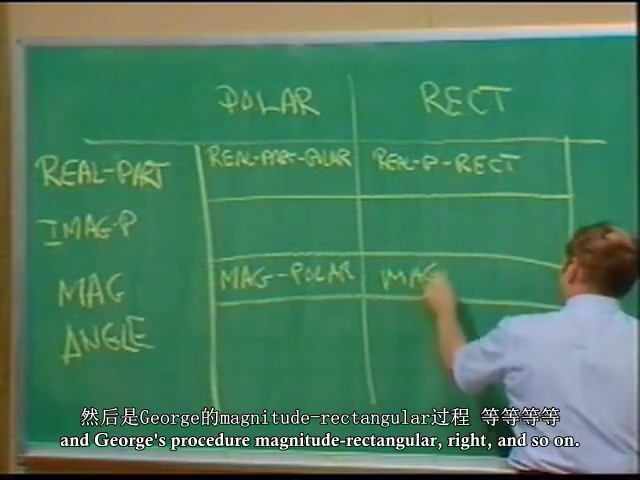 POLAR RECT
REAL-PART REAL-PART-POLAR REAL-P-RECT
IMAG-P
MAG MAG-POLAR MAG
ANGLE
然后是George的magnitude-rectangular过程 等等等等
and George's procedure magnitude-rectangular, right, and so on.